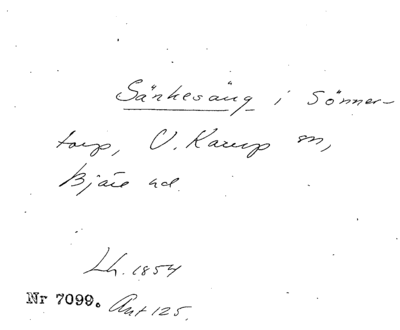 Sänkesäng i Sönner-
torp, V. Karup sn,
Bjäre hd.
Lh. 1854
Nr 7099. Ant 125.